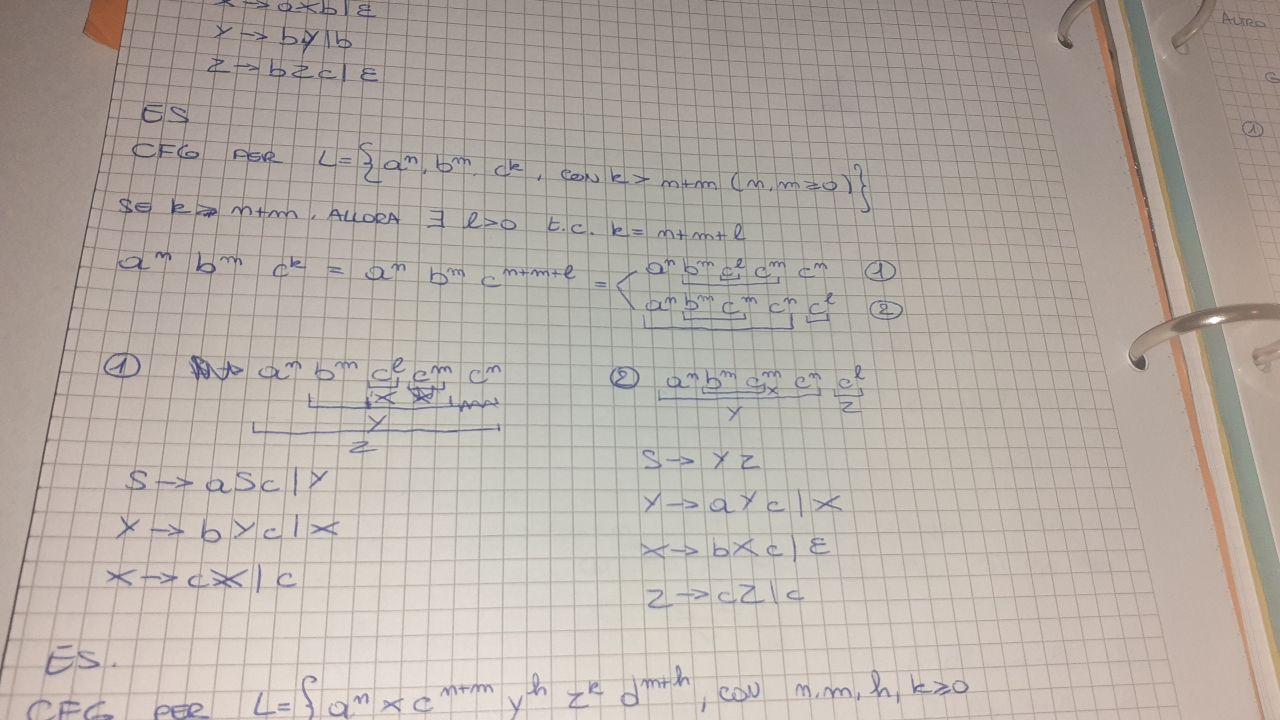 X → aXb | ε
Y → bY | b
Z → bZc | ε
ES
CFG PER L = { aⁿ, bᵐ, cᵏ, CON k > n+m (n, m ≥ 0) }
SE k > n+m, ALLORA ∃ l>0 t.c. k = n+m+l
aⁿ bᵐ cᵏ = aⁿ bᵐ cⁿ⁺ᵐ⁺ˡ =
aⁿ bᵐ cˡ cᵐ cⁿ ①
aⁿ bᵐ cᵐ cⁿ cˡ ②
① aⁿ bᵐ cˡ cᵐ cⁿ
X
Y
Z
S → aSc | Y
Y → bYc | X
X → cX | c
② aⁿ bᵐ cᵐ cⁿ cˡ
X
Y Z
S → YZ
Y → aYc | X
X → bXc | ε
Z → cZ | c
ES.
CFG PER L = { aⁿ x cⁿ⁺ᵐ yʰ zᵏ dᵐ⁺ʰ, CON n, m, h, k ≥ 0
①